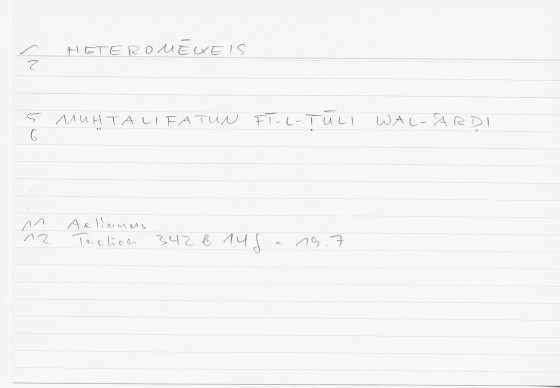 1 HETEROMĒKEIS
2
5 MUḪTALIFATUN FĪ-L-ṬŪLI WAL-ʿARḌI
6
11 Aelianus
12 Tactica 342 B 14f = 19.7